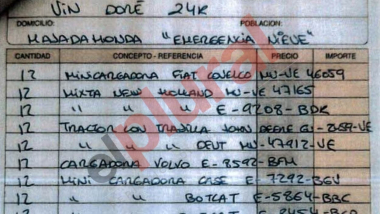 VIN DORÉ 24K
DOMICILIO: POBLACIÓN:
MAJADAHONDA "EMERGENCIA NIEVE"
CANTIDAD CONCEPTO - REFERENCIA PRECIO IMPORTE
12 MINICARGADORA FIAT KOVELCO MU-VE 46059
12 MIXTA NEW HOLLAND MU-VE 47165
12 " " E-9208-BDK
12 TRACTOR CON TRAILLA JOHN DEERE GU- -VE
12 " " " DEUT MU-47912-VE
12 CARGADORA VOLVO E-8592-BFH
12 MINI CARGADORA CASE E-7292-BGV
12 " " BOTCAT E-5864-BBC
12 " " E-8454-BCD
elplural